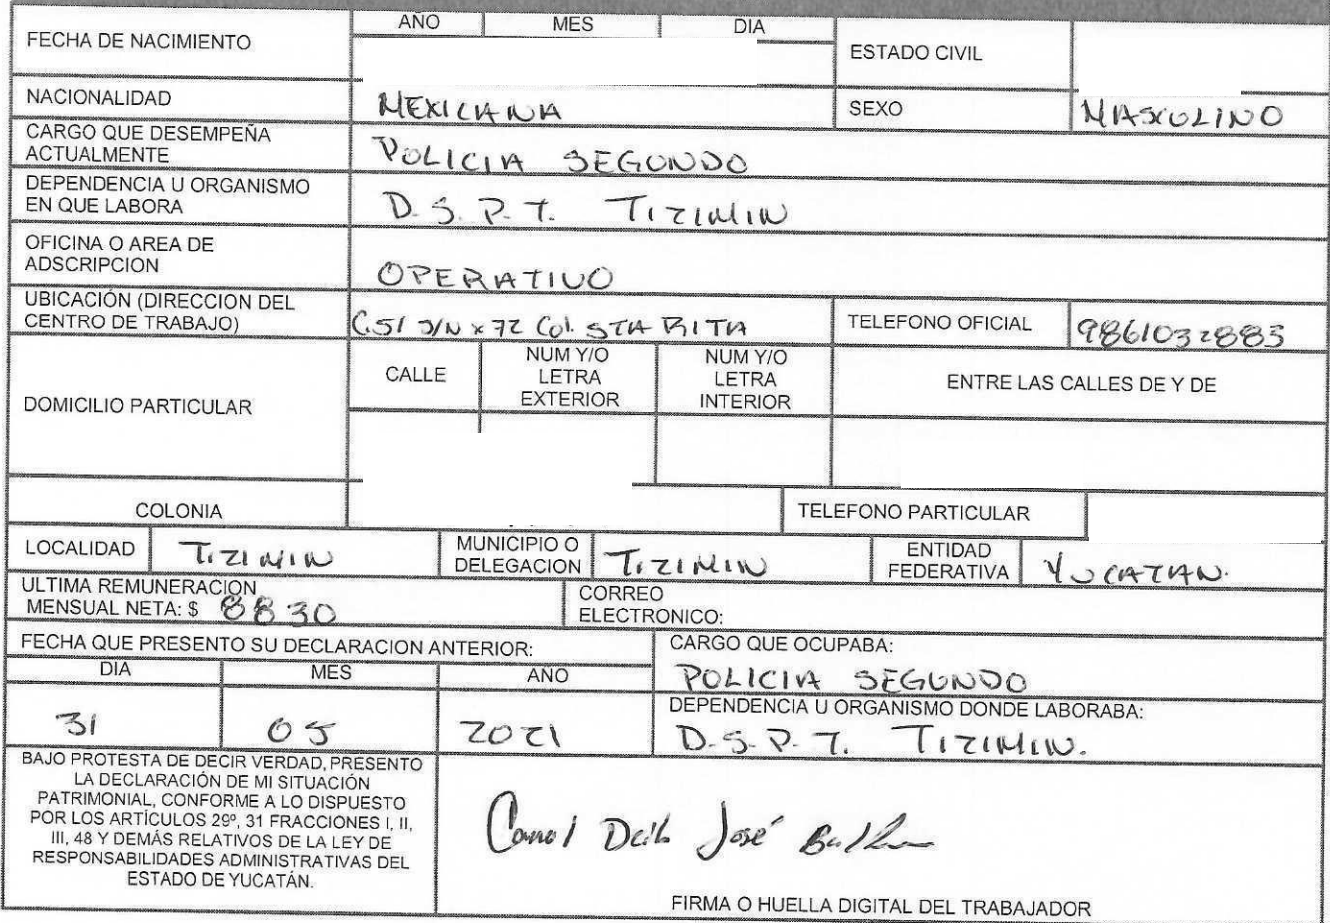 FECHA DE NACIMIENTO
AÑO MES DIA
ESTADO CIVIL
NACIONALIDAD MEXICANA SEXO MASCULINO
CARGO QUE DESEMPEÑA
ACTUALMENTE POLICIA SEGUNDO
DEPENDENCIA U ORGANISMO
EN QUE LABORA D. S. P. T. TIZIMIN
OFICINA O AREA DE
ADSCRIPCION OPERATIVO
UBICACIÓN (DIRECCION DEL
CENTRO DE TRABAJO) C.51 S/N x 72 Col. STA RITA TELEFONO OFICIAL 9861032883
DOMICILIO PARTICULAR
CALLE
NUM Y/O
LETRA
EXTERIOR
NUM Y/O
LETRA
INTERIOR
ENTRE LAS CALLES DE Y DE
COLONIA TELEFONO PARTICULAR
LOCALIDAD TIZIMIN
MUNICIPIO O
DELEGACION TIZIMIN
ENTIDAD
FEDERATIVA YUCATAN.
ULTIMA REMUNERACION
MENSUAL NETA: $ 8830
CORREO
ELECTRONICO:
FECHA QUE PRESENTO SU DECLARACION ANTERIOR:
DIA MES AÑO
31 05 2021
CARGO QUE OCUPABA:
POLICIA SEGUNDO
DEPENDENCIA U ORGANISMO DONDE LABORABA:
D. S. P. T. TIZIMIN.
BAJO PROTESTA DE DECIR VERDAD, PRESENTO
LA DECLARACIÓN DE MI SITUACIÓN
PATRIMONIAL, CONFORME A LO DISPUESTO
POR LOS ARTÍCULOS 29º, 31 FRACCIONES I, II,
III, 48 Y DEMÁS RELATIVOS DE LA LEY DE
RESPONSABILIDADES ADMINISTRATIVAS DEL
ESTADO DE YUCATÁN.
José
FIRMA O HUELLA DIGITAL DEL TRABAJADOR